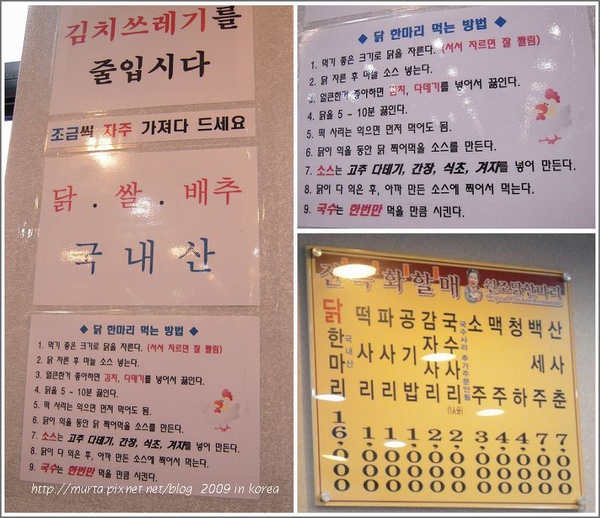 김치쓰레기를
줄입시다
조금씩 자주 가져다 드세요
닭 . 쌀 . 배추
국 내 산
◆ 닭 한마리 먹는 방법 ◆
1. 먹기 좋은 크기로 닭을 자른다. (서서 자르면 잘 짤림)
2. 닭 자른 후 마늘 소스 넣는다.
3. 얼큰한거 좋아하면 김치, 다데기를 넣어서 끓인다.
4. 닭을 5 ~ 10분 끓인다.
5. 떡 사리는 익으면 먼저 먹어도 됨.
6. 닭이 익을 동안 닭 찍어먹을 소스를 만든다.
7. 소스는 고추 다데기, 간장, 식초, 겨자를 넣어 만든다.
8. 닭이 다 익은 후, 아까 만든 소스에 찍어서 먹는다.
9. 국수는 한번만 먹을 만큼 시킨다.
http://murta.pixnet.net/blog 2009 in korea
◆ 닭 한마리 먹는 방법 ◆
1. 먹기 좋은 크기로 닭을 자른다. (서서 자르면 잘 짤림)
2. 닭 자른 후 마늘 소스 넣는다.
3. 얼큰한거 좋아하면 김치, 다데기를 넣어서 끓인다.
4. 닭을 5 ~ 10분 끓인다.
5. 떡 사리는 익으면 먼저 먹어도 됨.
6. 닭이 익을 동안 닭 찍어먹을 소스를 만든다.
7. 소스는 고추 다데기, 간장, 식초, 겨자를 넣어 만든다.
8. 닭이 다 익은 후, 아까 만든 소스에 찍어서 먹는다.
9. 국수는 한번만 먹을 만큼 시킨다.
진옥화할매 원조닭한마리
닭한마리 16,000
국내산
떡사리 1,000
파사리 1,000
공기밥 1,000
감자사리 2,000
국수사리 (1인분) 2,000
국수사리 추가주문안됨
소주 3,000
맥주 4,000
청하 4,000
백세주 7,000
산사춘 7,000